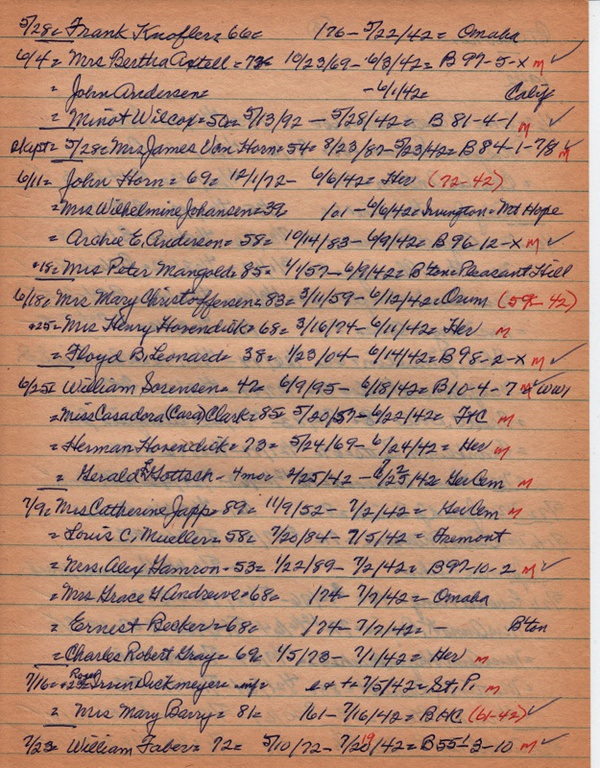 5/28= Frank Knofler= 66= 176- 5/22/42= Omaha
6/4= Mrs Bertha Astell= 72= 10/23/69- 6/3/42= B 97-5-x m ✓
= John Andersen= -6/1/42= Calif
= Minot Wilcox= 50= 5/13/92 - 5/28/42= B 81-4-1 m ✓
5/28= Mrs James Van Horn= 54= 8/23/87- 5/23/42= B 84-1-7/8 m ✓
6/11= John Horn= 69= 12/1/72- 6/6/42= Her (72-42)
= Mrs Wilhelmine Johansen= 39 - 6/6/42= Irvington= Mt Hope
= Archie E. Anderson= 58= 10/14/83- 6/9/42= B 96-12-x m ✓
*18= Mrs Peter Mangold= 85= 4/1/57- 6/9/42= B'ton= Pleasant Hill
6/18= Mrs Mary Christoffersen= 83= 3/11/59- 6/12/42= Orum (59-42)
*25= Mrs Henry Hovendick= 68= 3/16/74- 6/11/42= Her m
= Floyd B. Leonard= 38= 1/23/04- 6/14/42= B 98-2-x m ✓
6/25= William Sorensen= 47= 6/9/95- 6/18/42= B10-4-7 m ✓ WW1
= Miss Casadora (Cara) Clark= 85= 5/20/57- 6/22/42= HC m
= Herman Hovendick= 73= 5/24/69- 6/24/42= Her m
= Gerald L. Gottsch- 4mo= 2/25/42 - /25/42 Ger Cem m
7/9= Mrs Catherine Japp= 89= 11/9/52- 7/2/42= Ger Cem m
= Louis C. Mueller= 58= 7/20/84- 7/5/42= Fremont
= Mrs. Alex Gamron= 53= 1/22/89- 7/2/42= B97-10-2 m ✓
= Mrs Grace G. Andrews= 68= 174- 7/7/42= Omaha
= Ernest Becker= 68= 174- 7/7/42= - B'ton
= Charles Robert Gray= 69= 1/5/73- 7/1/42= Her m
7/16= Irvin Dickmeyer= inf= 7/5/42= St. P. m
= Mrs Mary Barry= 81= 161- 7/16/42= BHC (61-42) ✓
7/23= William Faber= 72= 5/10/72- 7/20/42= B55-3-10 m ✓